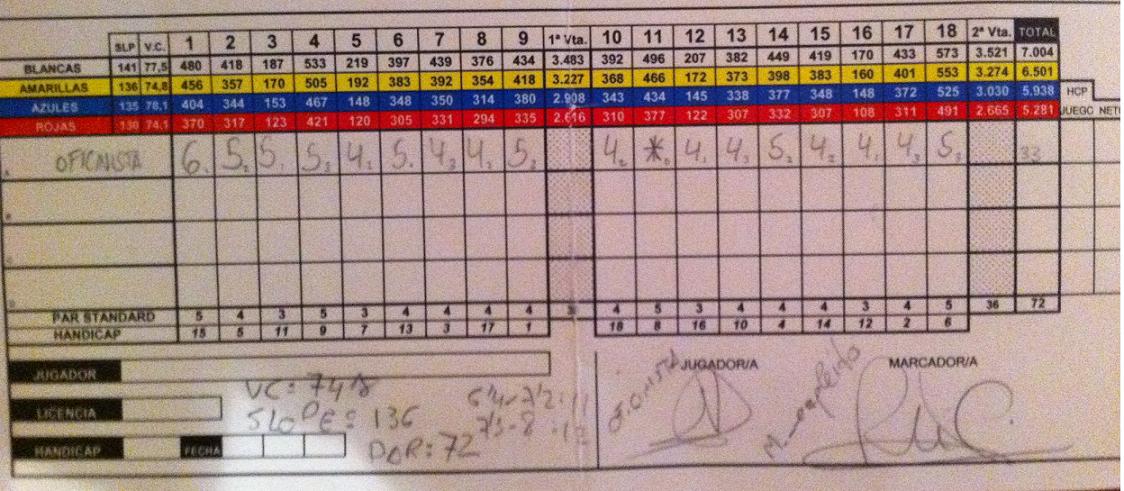 SLP V.C. 1 2 3 4 5 6 7 8 9 1ª Vta. 10 11 12 13 14 15 16 17 18 2ª Vta. TOTAL
BLANCAS 141 77,5 480 418 187 533 219 397 439 376 434 3.483 392 496 207 382 449 419 170 433 573 3.521 7.004
AMARILLAS 136 74,8 456 357 170 505 192 383 392 354 418 3.227 368 466 172 373 398 383 160 401 553 3.274 6.501
AZULES 135 78,1 404 344 153 467 148 348 350 314 380 2.908 343 434 145 338 377 348 148 372 525 3.030 5.938 HCP
ROJAS 130 74,1 370 317 123 421 120 305 331 294 335 2.616 310 377 122 307 332 307 108 311 491 2.665 5.281 JUEGO NETO
A 6. 5. 5. 5. 4. 5. 4. 4. 5. 4. *. 4. 4. 5. 4. 4. 4. 5. 33
PAR STANDARD 5 4 3 5 3 4 4 4 4 4 5 3 4 4 4 3 4 5 36 72
HANDICAP 15 5 11 9 7 13 3 17 1 18 8 16 10 4 14 12 2 6
JUGADOR
LICENCIA
HANDICAP FECHA
VC: 74'8
SLOPE: 136
PAR: 72
JUGADOR/A
MARCADOR/A